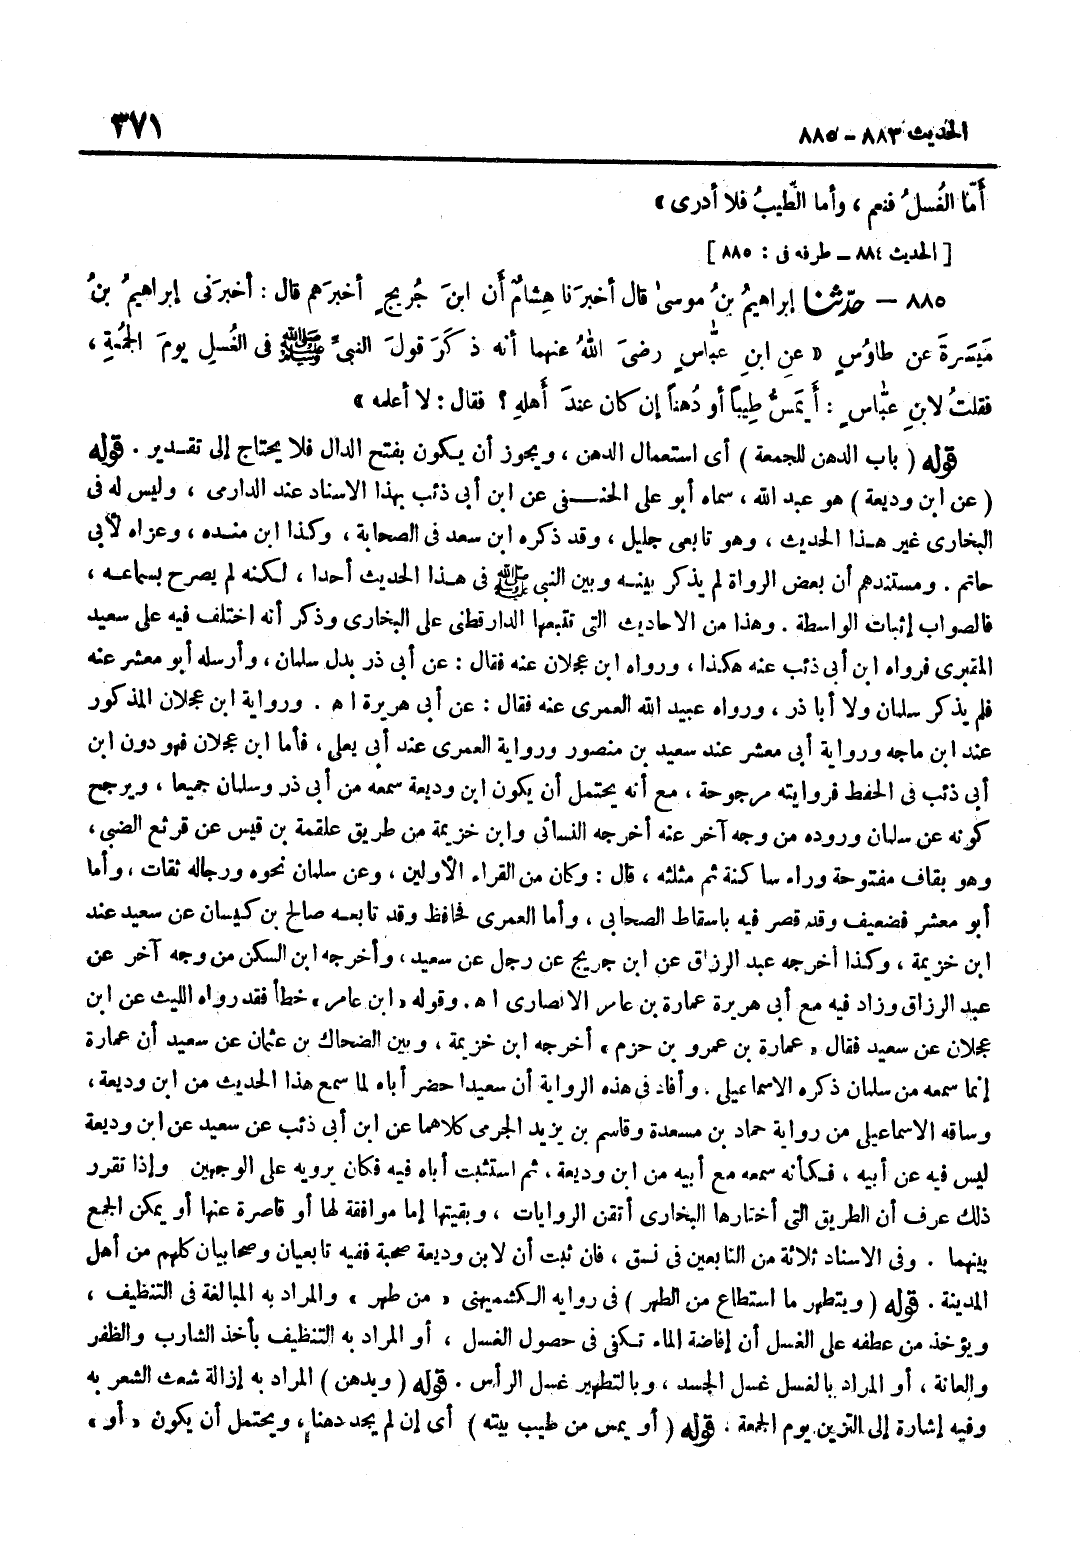 الحديث ٨٨٣ – ٨٨٥
٣٧١
أَمّا الغُسلُ فنعم ، وأما الطِّيبُ فلا أدرى »
[ الحديث ٨٨٤ – طرفه فى : ٨٨٥ ]
٨٨٥ – حدّثنا إبراهيمُ بنُ موسىٰ قال أخبرَنا هِشامٌ أَن ابنَ جُريجٍ أخبرَهم قال : أخبرَنى إبراهيمُ بنُ
مَيْسَرةَ عن طاوُسٍ « عنِ ابنِ عبّاسٍ رضىَ اللهُ عنهما أنه ذكَرَ قولَ النبىِّ ﷺ فى الغُسلِ يومَ الجمُعةِ ،
فقلتُ لابنِ عبّاسٍ : أَيَمَسُّ طِيباً أو دُهناً إن كان عندَ أَهلهِ ؟ فقال : لا أعلمه »
قوله ( باب الدهن للجمعة ) أى استعمال الدهن ، ويجوز أن يكون بفتح الدال فلا يحتاج إلى تقدير . قوله
( عن ابن وديعة ) هو عبد الله ، سماه أبو على الحنفى عن ابن أبى ذئب بهذا الاسناد عند الدارمى ، وليس له فى
البخارى غير هذا الحديث ، وهو تابعى جليل ، وقد ذكره ابن سعد فى الصحابة ، وكذا ابن منده ، وعزاه لأبى
حاتم . ومستندهم أن بعض الرواة لم يذكر بينه وبين النبى ﷺ فى هذا الحديث أحدا ، لكنه لم يصرح بسماعه ،
فالصواب إثبات الواسطة . وهذا من الاحاديث التى تتبعها الدارقطنى على البخارى وذكر أنه اختلف فيه على سعيد
المقبرى فرواه ابن أبى ذئب عنه هكذا ، ورواه ابن عجلان عنه فقال : عن أبى ذر بدل سلمان ، وأرسله أبو معشر عنه
فلم يذكر سلمان ولا أبا ذر ، ورواه عبيد الله العمرى عنه فقال : عن أبى هريرة اه . ورواية ابن عجلان المذكور
عند ابن ماجه ورواية أبى معشر عند سعيد بن منصور ورواية العمرى عند أبى يعلى ، فأما ابن عجلان فهو دون ابن
أبى ذئب فى الحفظ فروايته مرجوحة ، مع أنه يحتمل أن يكون ابن وديعة سمعه من أبى ذر وسلمان جميعا ، ويرجح
كونه عن سلمان وروده من وجه آخر عنه أخرجه النسائى وابن خزيمة من طريق علقمة بن قيس عن قرثع الضبى ،
وهو بقاف مفتوحة وراء ساكنة ثم مثلثه ، قال : وكان من القراء الأولين ، وعن سلمان نحوه ورجاله ثقات ، وأما
أبو معشر فضعيف وقد قصر فيه باسقاط الصحابى ، وأما العمرى فحافظ وقد تابعه صالح بن كيسان عن سعيد عند
ابن خزيمة ، وكذا أخرجه عبد الرزاق عن ابن جريج عن رجل عن سعيد ، وأخرجه ابن السكن من وجه آخر عن
عبد الرزاق وزاد فيه مع أبى هريرة عمارة بن عامر الانصارى اه . وقوله « ابن عامر » خطأ فقد رواه الليث عن ابن
عجلان عن سعيد فقال « عمارة بن عمرو بن حزم » أخرجه ابن خزيمة ، وبين الضحاك بن عثمان عن سعيد أن عمارة
إنما سمعه من سلمان ذكره الاسماعيلى . وأفاد فى هذه الرواية أن سعيدا حضر أباه لما سمع هذا الحديث من ابن وديعة ،
وساقه الاسماعيلى من رواية حماد بن مسعدة وقاسم بن يزيد الجرمى كلاهما عن ابن أبى ذئب عن سعيد عن ابن وديعة
ليس فيه عن أبيه ، فكأنه سمعه مع أبيه من ابن وديعة ، ثم استثبت أباه فيه فكان يرويه على الوجهين وإذا تقرر
ذلك عرف أن الطريق التى أختارها البخارى أتقن الروايات ، وبقيتها إما موافقة لها أو قاصرة عنها أو يمكن الجمع
بينهما . وفى الاسناد ثلاثة من التابعين فى نسق ، فان ثبت أن لابن وديعة صحبة ففيه تابعيان وصحابيان كلهم من أهل
المدينة . قوله ( ويتطهر ما استطاع من الطهر ) فى روايه الكشميهنى « من طهر » والمراد به المبالغة فى التنظيف ،
ويؤخذ من عطفه على الغسل أن إفاضة الماء تكفى فى حصول الغسل ، أو المراد به التنظيف بأخذ الشارب والظفر
والعانة ، أو المراد بالغسل غسل الجسد ، وبالتطهير غسل الرأس . قوله ( ويدهن ) المراد به إزالة شعث الشعر به
وفيه إشارة إلى التزين يوم الجمعة . قوله ( أو يمس من طيب بيته ) أى إن لم يجد دهنا ، ويحتمل أن يكون « أو »